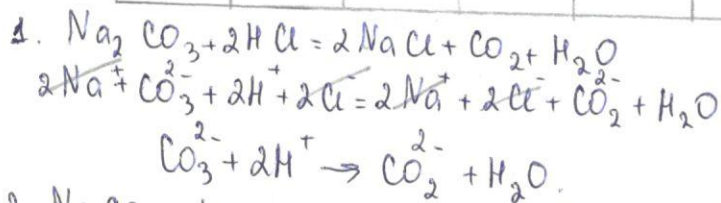 1. Na₂CO₃ + 2HCl = 2NaCl + CO₂ + H₂O
2Na⁺ + CO₃²⁻ + 2H⁺ + 2Cl⁻ = 2Na⁺ + 2Cl⁻ + CO₂²⁻ + H₂O
CO₃²⁻ + 2H⁺ → CO₂²⁻ + H₂O.